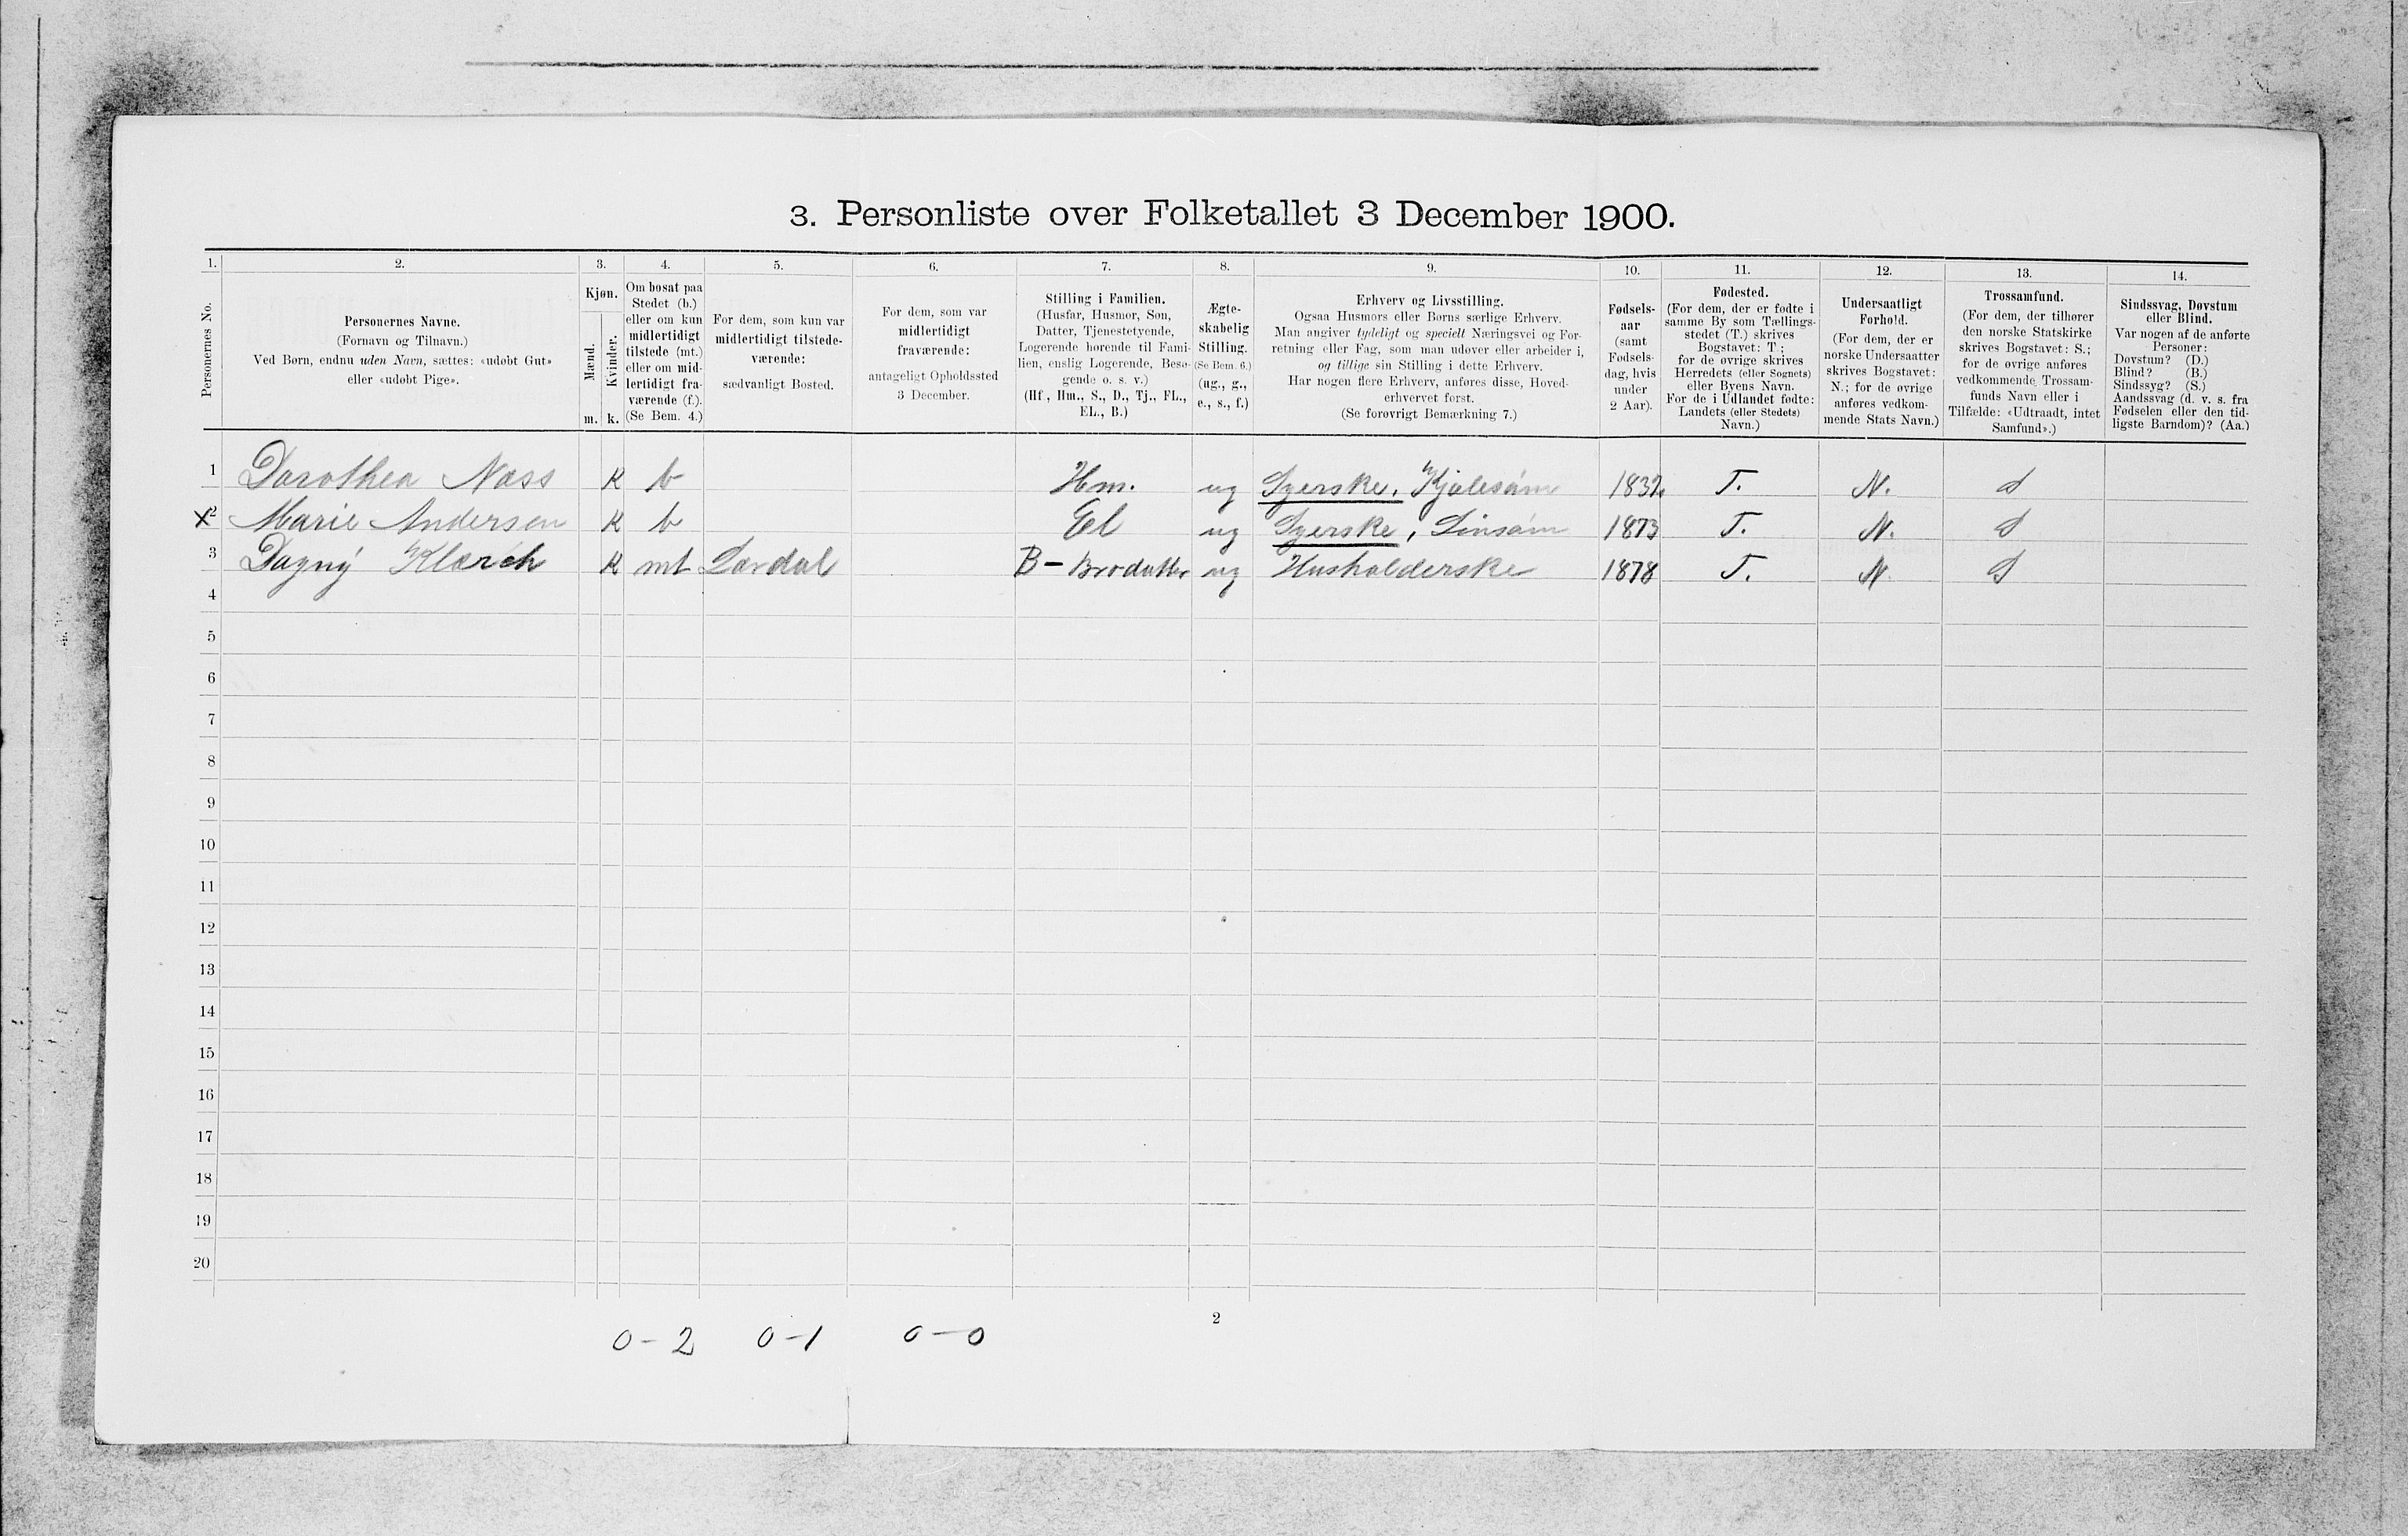 3. Personliste over Folketallet 3 December 1900.
1. 2. 3. 4. 5. 6. 7. 8. 9. 10. 11. 12. 13. 14.
Personernes No.
Personernes Navne.
(Fornavn og Tilnavn.)
Ved Børn, endnu uden Navn, sættes: «udøbt Gut»
eller «udøbt Pige».
Kjøn.
Mænd.
Kvinder.
m. k.
Om bosat paa
Stedet (b.)
eller om kun
midlertidigt
tilstede (mt.)
eller om mid-
lertidigt fra-
værende (f.).
(Se Bem. 4.)
For dem, som kun var
midlertidigt tilstede-
værende:
sædvanligt Bosted.
For dem, som var
midlertidigt
fraværende:
antageligt Opholdssted
3 December.
Stilling i Familien.
(Husfar, Husmor, Søn,
Datter, Tjenestetyende,
Logerende hørende til Fami-
lien, enslig Logerende, Besø-
gende o. s. v.)
(Hf., Hm., S., D., Tj., FL.,
EL., B.)
Ægte-
skabelig
Stilling.
(Se Bem. 6.)
(ug., g.,
e., s., f.)
Erhverv og Livsstilling.
Ogsaa Husmors eller Børns særlige Erhverv.
Man angiver tydeligt og specielt Næringsvei og For-
retning eller Fag, som man udøver eller arbeider i,
og tillige sin Stilling i dette Erhverv.
Har nogen flere Erhverv, anføres disse, Hoved-
erhvervet først.
(Se forøvrigt Bemærkning 7.)
Fødsels-
aar
(samt
Fødsels-
dag, hvis
under
2 Aar).
Fødested.
(For dem, der er fødte i
samme By som Tællings-
stedet (T.) skrives
Bogstavet: T.;
for de øvrige skrives
Herredets (eller Sognets)
eller Byens Navn.
For de i Udlandet fødte:
Landets (eller Stedets)
Navn.)
Undersaatligt
Forhold.
(For dem, der er
norske Undersaatter
skrives Bogstavet:
N.; for de øvrige
anføres vedkom-
mende Stats Navn.)
Trossamfund.
(For dem, der tilhører
den norske Statskirke
skrives Bogstavet: S.;
for de øvrige anføres
vedkommende Trossam-
funds Navn eller i
Tilfælde: «Udtraadt, intet
Samfund».)
Sindssvag, Døvstum
eller Blind.
Var nogen af de anførte
Personer:
Døvstum? (D.)
Blind? (B.)
Sindssyg? (S.)
Aandssvag (d. v. s. fra
Fødselen eller den tid-
ligste Barndom)? (Aa.)
1 Dorothea Næss K b Hm. ug Syerske, Kjolesøm 1832 T. N. S
X 2 Marie Andersen K b El ug Syerske, Linsøm 1873 T. N. S
3 Dagny K mt Lardal B - Brodatter ug Husholderske 1878 T. N S
4
5
6
7
8
9
10
11
12
13
14
15
16
17
18
19
20
2
0-2 0-1 0-0